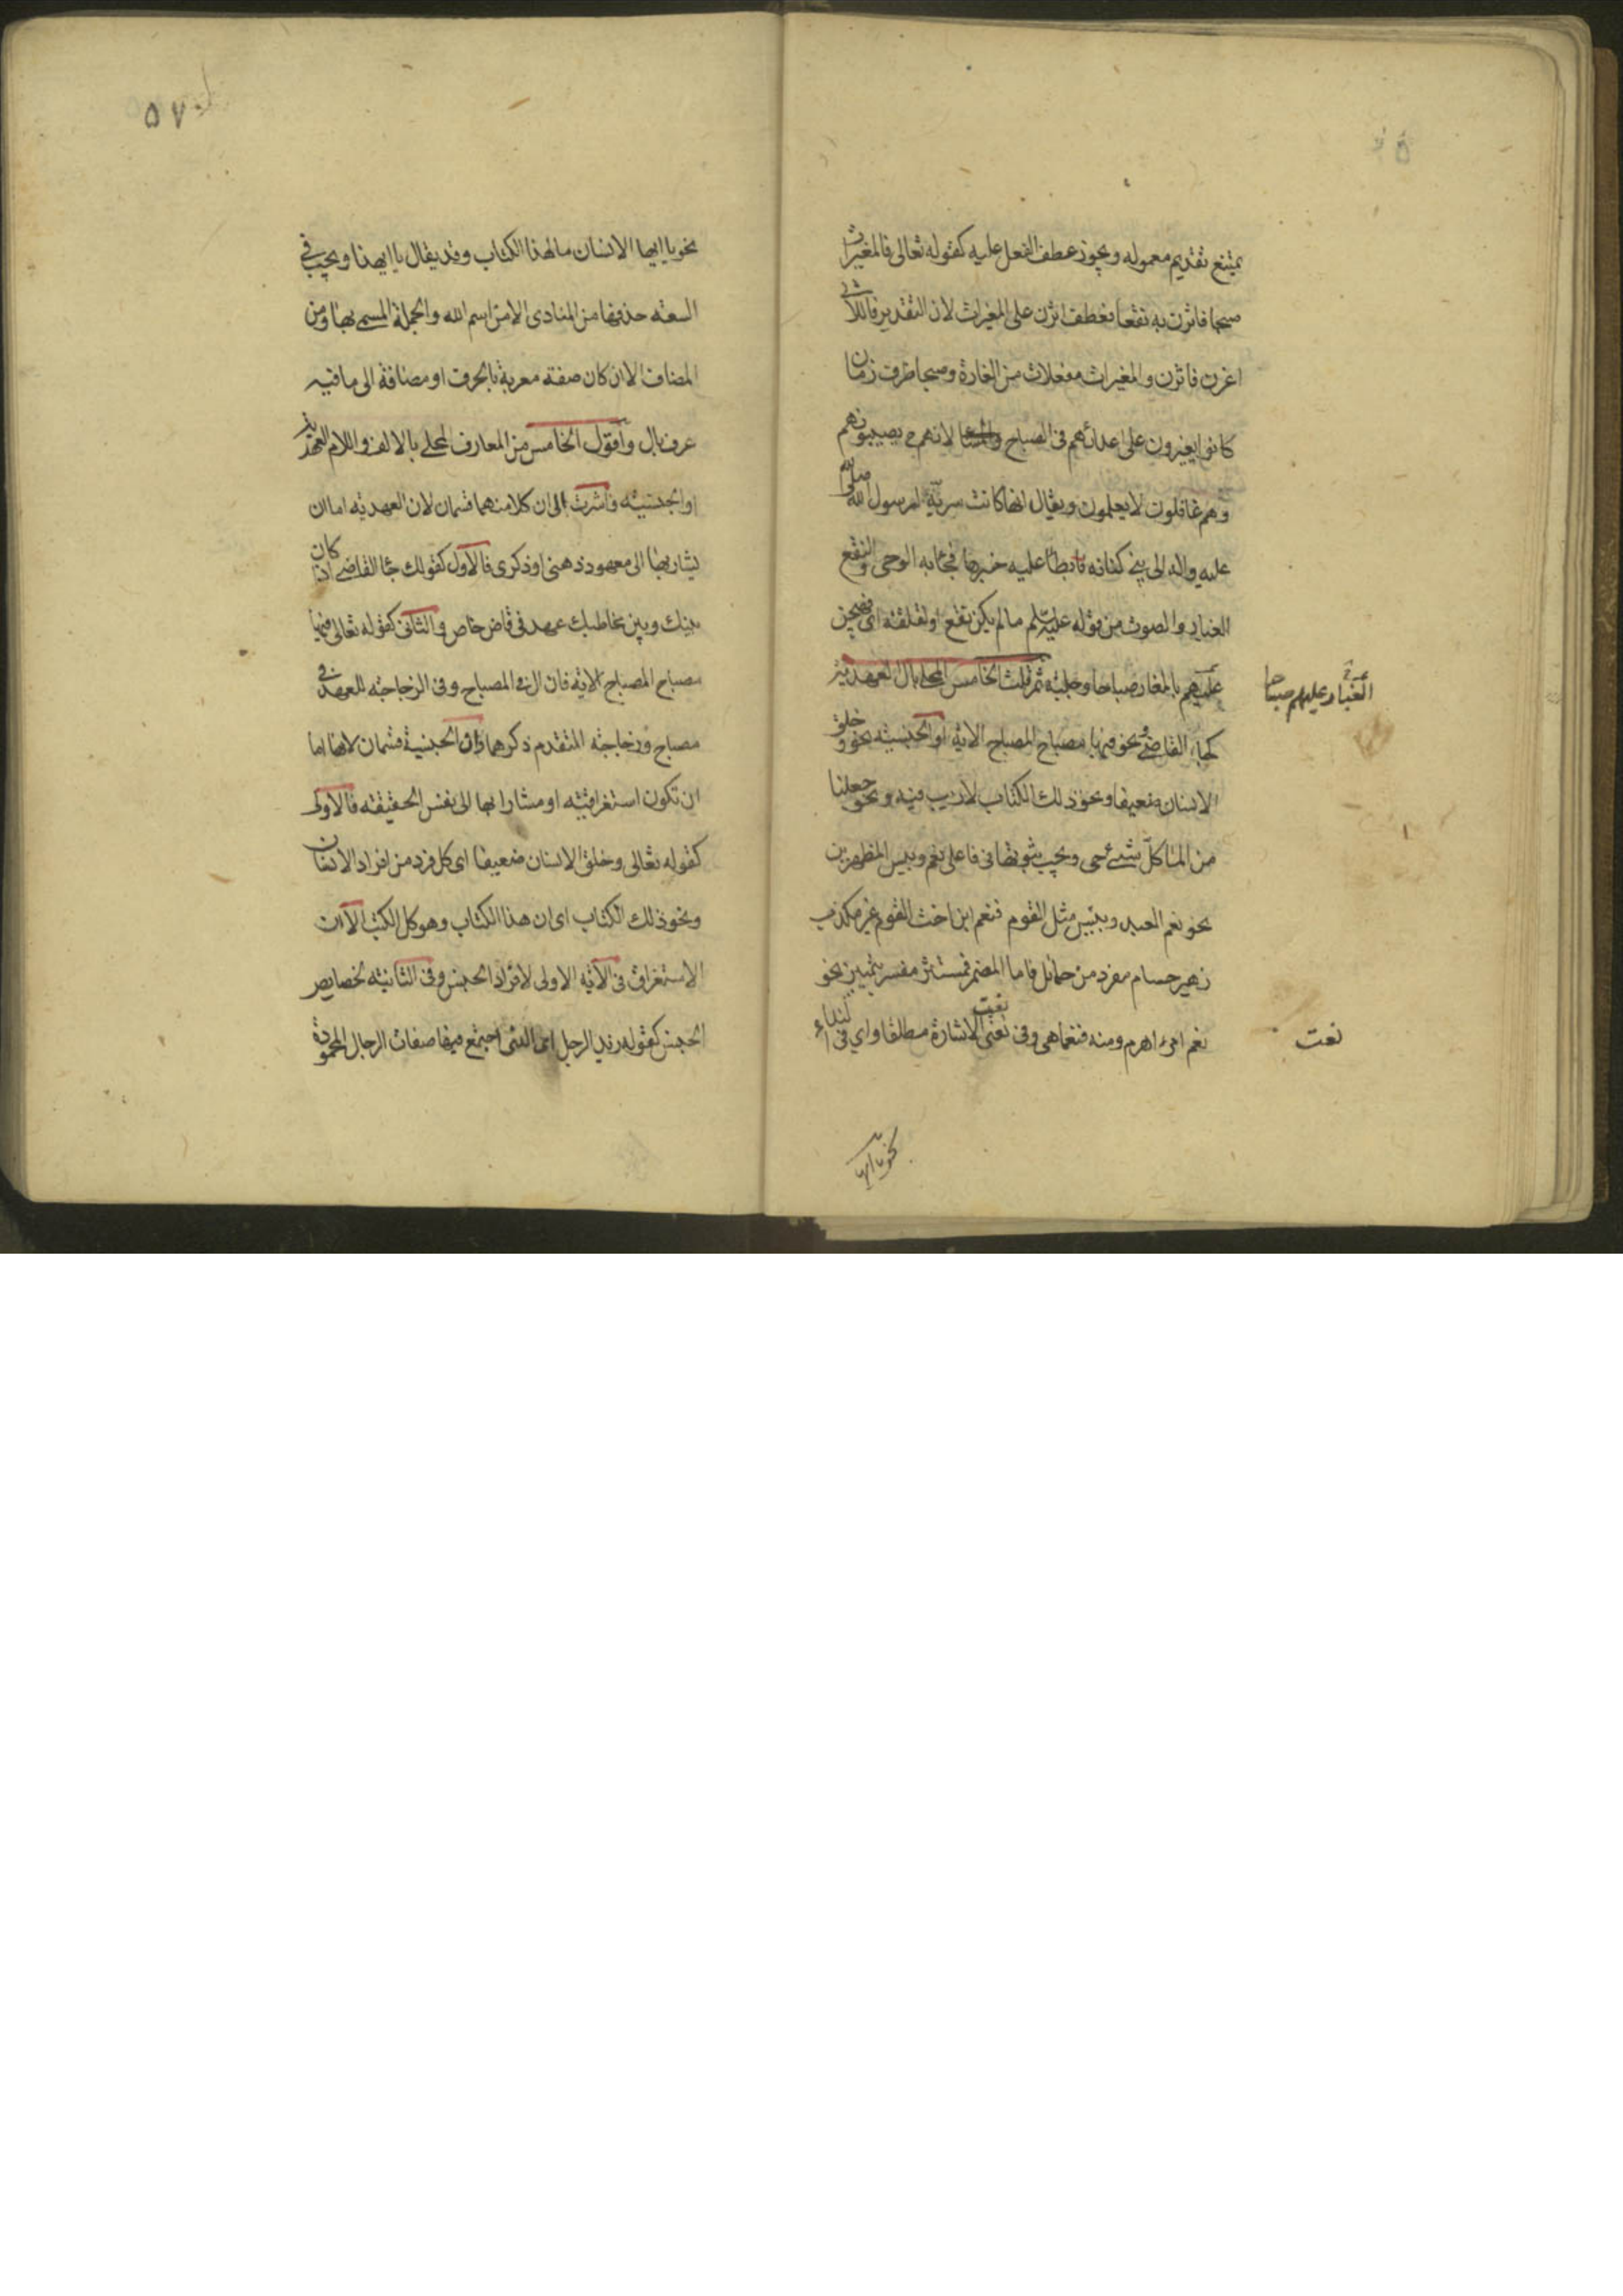 يمتنع تقديم معموله ويجوز عطف الفعل عليه كقوله تعالى فالمغيرات
صبحا فاثرن به نقعا فعطف اثرن على المغيرات لان التقدير فاللاتي
اغرن فاثرن والمغيرات مفعلات من الغارة وصبحا ظرف زمان
كانوا يغيرون على اعدائهم في الصباح لانهم ح يصيبونهم
وهم غافلون لا يعلمون ويقال انها كانت سرية لرسول الله صلى الله
عليه واله الى بني كنانه فابطا عليه خبرها فجا به الوحي والنقع
الغبار والصوت من قوله عليه السلم ما لم يكن نقع او لقلقة اي فهيجن
عليهم بالمغار صباحا وجلبة ثم قلت الخامس المحلى بال العهدية
كجاء القاضي ونحو فيها مصباح المصباح الاية او الجنسية نحو وخلق
الانسان ضعيفا ونحو ذلك الكتاب لا ريب فيه ونحو وجعلنا
من الما كل شئ حي ويجب ثبوتها في فاعلي نعم وبئس المظهرين
نحو نعم العبد وبئس مثل القوم فنعم ابن اخت القوم غير مكذب
زهير حسام مفرد من حمائل فاما المضمر فمستتر مفسر بتمييز نحو
نعم امرءا هرم ومنه فنعما هي وفي نعتي الاشارة مطلقا واي في النداء
نعت
الغبار اي عليهم صباحا
نعت
نحو يا ايها
٥٧
نحو يا ايها الانسان ما لهذا الكتاب وقد يقال يا ايهذا ويجب في
السعة حذفها من المنادى الا من اسم الله والجملة المسمى بها ومن
المضاف الا ان كان صفة معربة بالحرف او مضافة الى ما فيه
عرف بال واقول الخامس من المعارف المحلى بالالف واللام العهدية
او الجنسية واشرت الى ان كلا منهما قسمان لان العهدية اما ان
يشار بها الى معهود ذهني او ذكري فالاول كقولك جا القاضي اذا كان
بينك وبين مخاطبك عهد في قاض خاص والثاني كقوله تعالى فيها
مصباح المصباح الاية فان ال في المصباح وفي الزجاجة للعهد في
مصباح وزجاجة المتقدم ذكرهما وان الجنسية قسمان لانها اما
ان تكون استغراقية او مشارا بها الى نفس الحقيقة فالاولى
كقوله تعالى وخلق الانسان ضعيفا اى كل فرد من افراد الانسان
ونحو ذلك الكتاب اى ان هذا الكتاب وهو كل الكتب الا ان
الاستغراق في الآية الاولى لافراد الجنس وفي الثانية لخصايص
الجنس كقوله زيد الرجل اى الذي اجتمع فيها صفات الرجال المحمودة